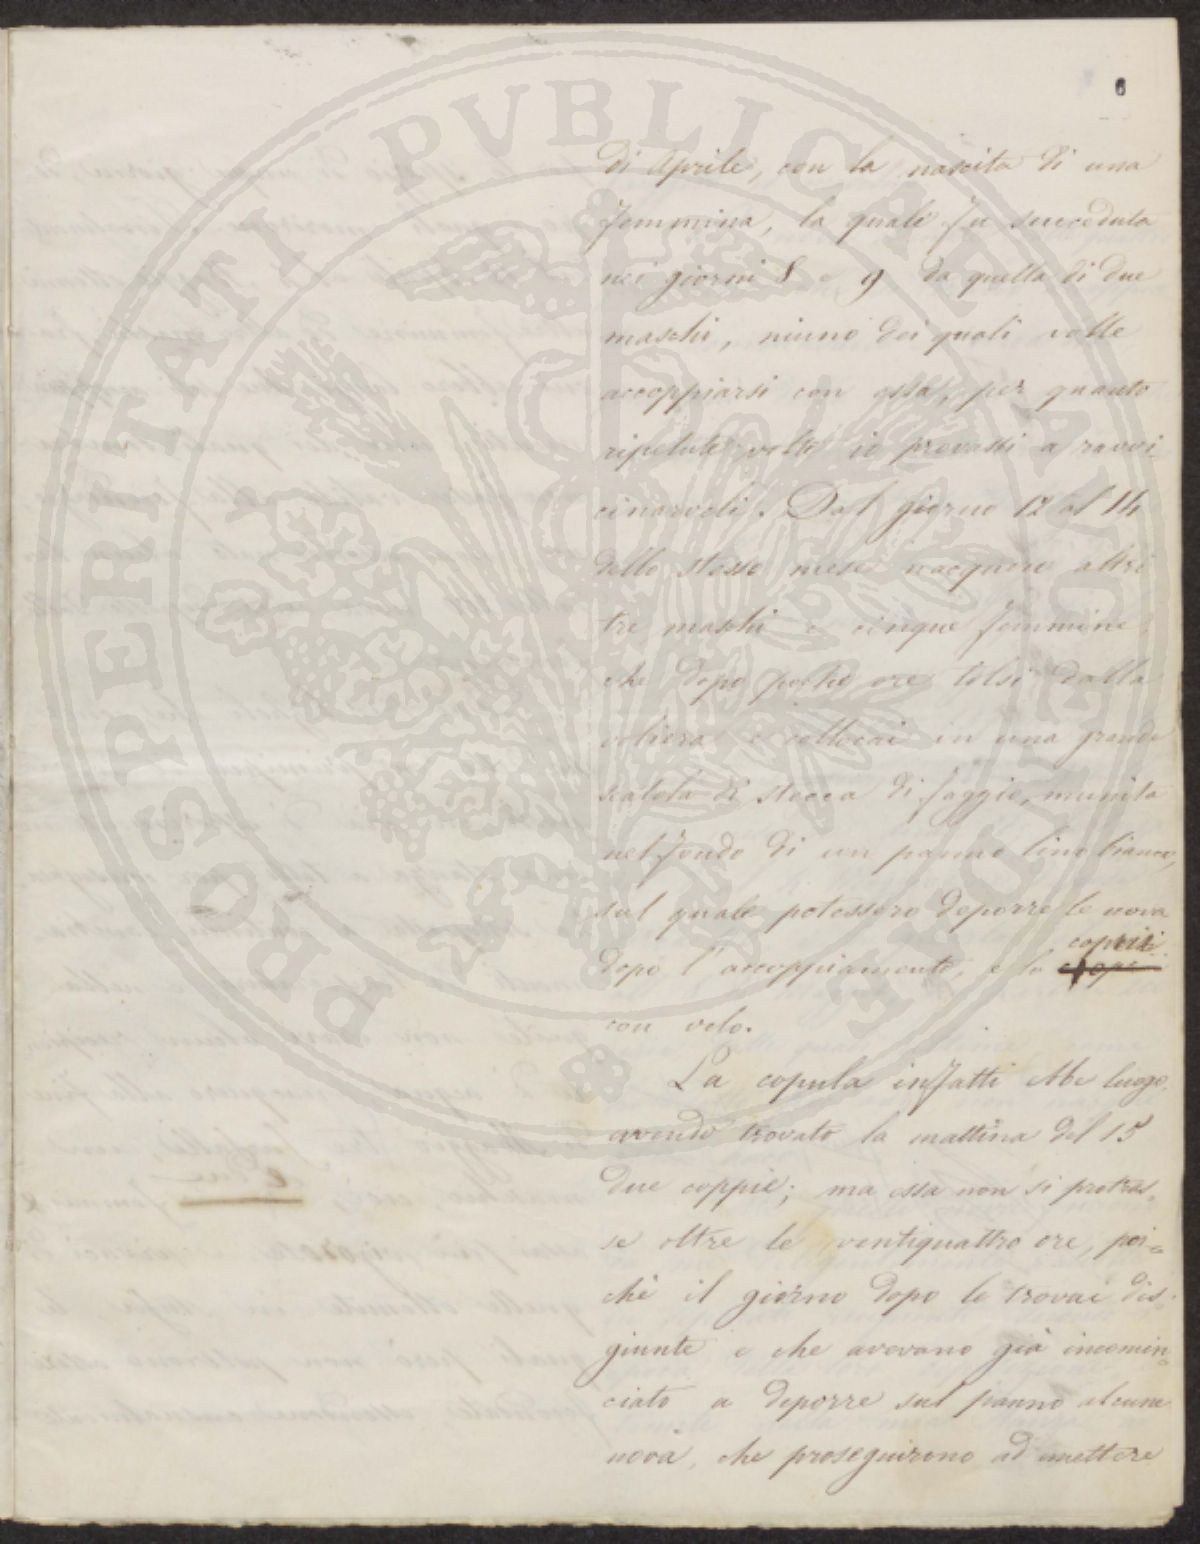 6
PROSPERITATI PVBLICAE AVGENDAE
di Aprile, con la nascita di una
femmina, la quale fu succeduta
nei giorni 8 e 9 da quella di due
maschi, niuno dei quali volle
accoppiarsi con essa, per quanto
ripetute volte io provassi a ravvi-
cinarveli. Dal giorno 12 al 14
dello stesso mese nacquero altri
tre maschi e cinque femmine
che dopo poche ore tolsi dalla
voliera e collocai in una grande
scatola di stecca di faggio, munita
nel fondo di un panno lino bianco,
sul quale potessero deporre le uova
coprii
dopo l'accoppiamento, e la
con velo.
La copula infatti ebbe luogo,
avendo trovato la mattina del 15
due coppie; ma essa non si protras-
se oltre le ventiquattro ore, poi=
chè il giorno dopo le trovai dis-
giunte e che avevano già incomin=
ciato a deporre sul panno alcune
uova, che proseguirono ad emettere